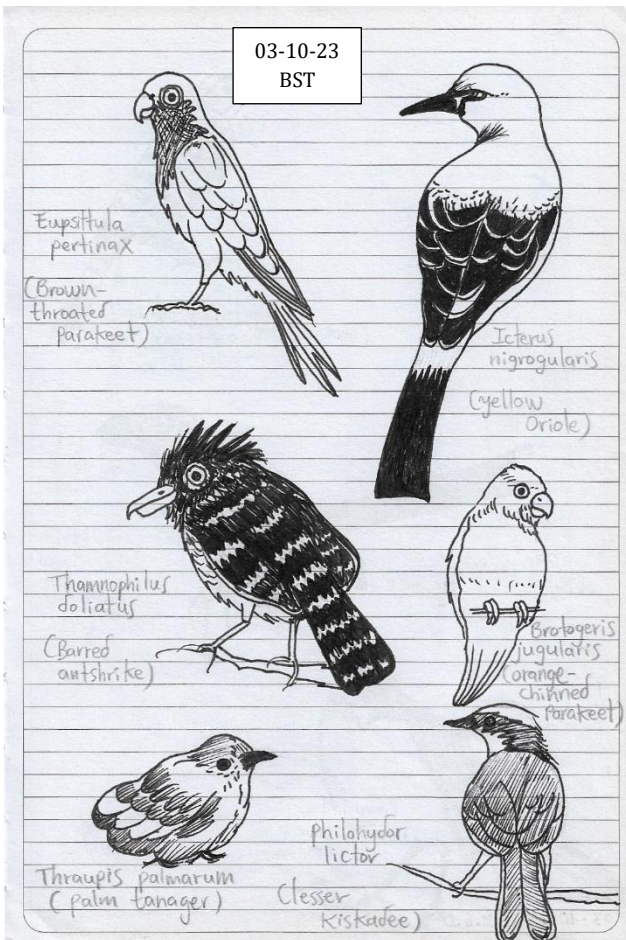 03-10-23
BST
Eupsittula
pertinax
(Brown-
throated
parakeet)
Icterus
nigrogularis
(yellow
Oriole)
Thamnophilus
doliatus
(Barred
antshrike)
Brotogeris
jugularis
(orange-
chinned
Parakeet)
Thraupis palmarum
(palm tanager)
philohydor
lictor
(lesser
Kiskadee)